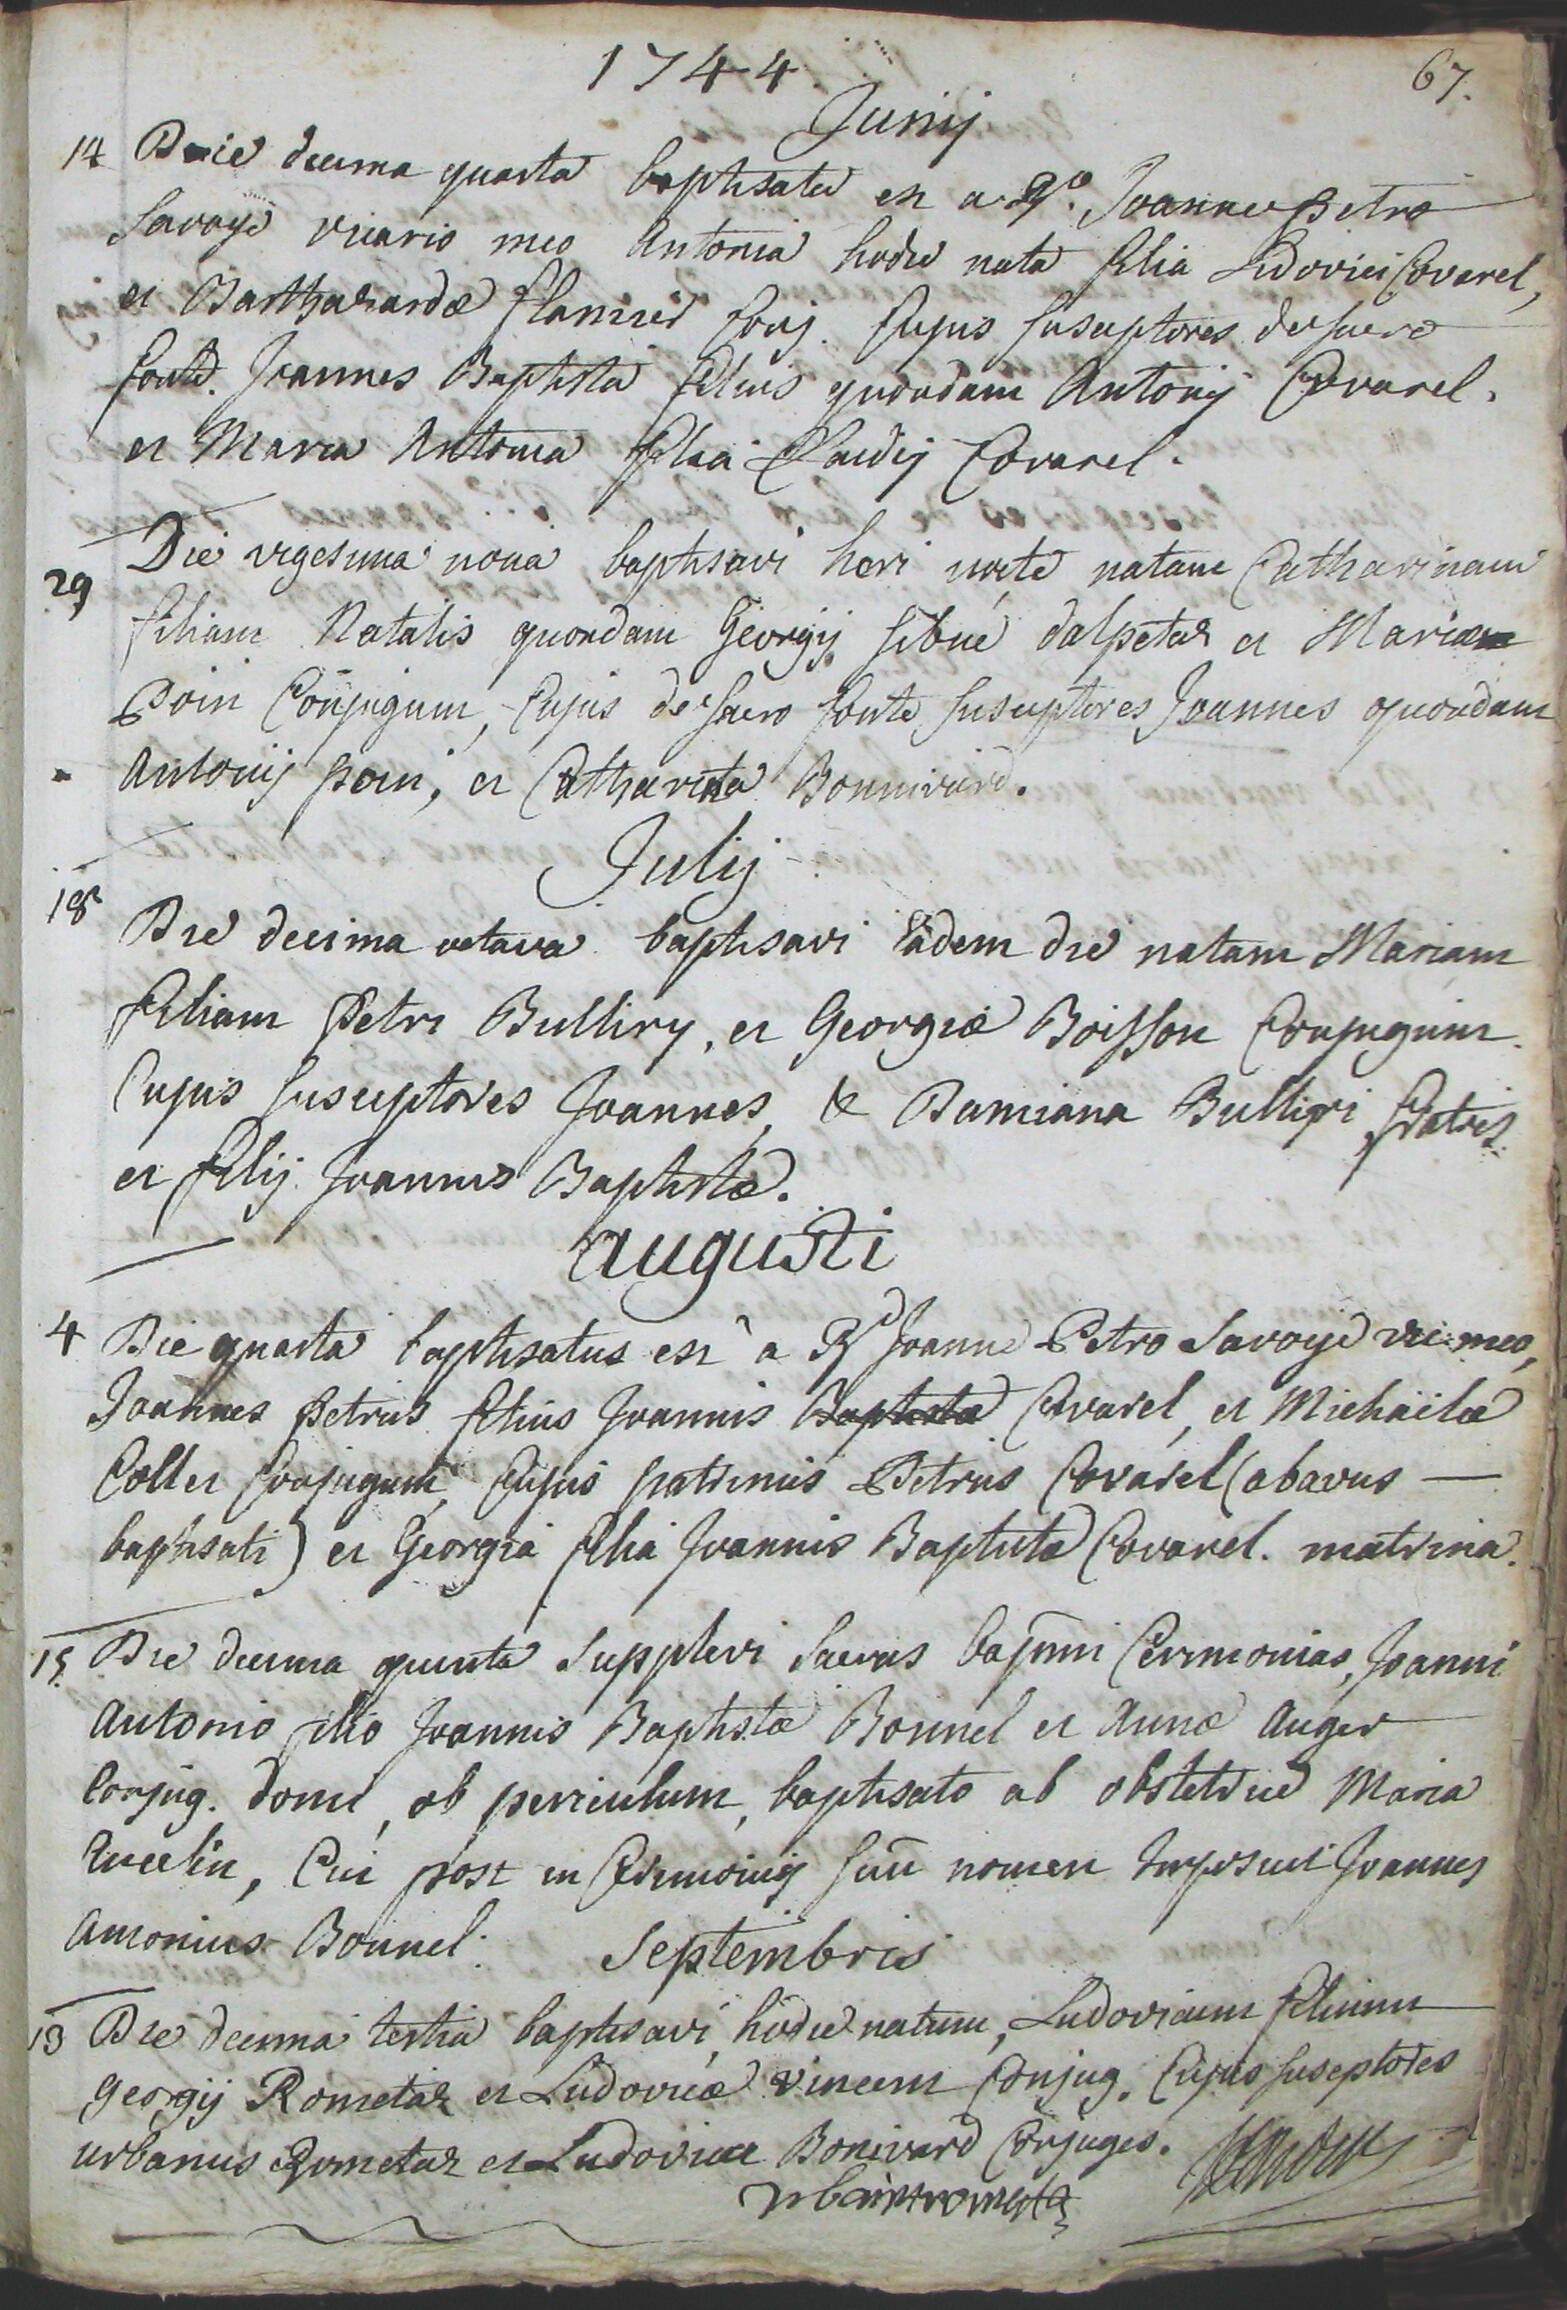 1744.
67.
Junij
14 Die decima quarta baptisata est a Rdo. Joanne Petro
Savoye vicario meo Antonia hodie nata filia Ludovici Covarel,
et Balthazardæ Conj. Cujus susceptores de sacro
fonte. Joannes Baptista filius quondam Antonij Covarel.
et Maria Antonia filia Claudij Covarel.
29 Die vigesima nona baptisavi heri nocte natam Catharinam
filiam Natalis quondam Georgij Sibué dalpetaz et Mariæ
Poin Conjugum, Cujus de sacro fonte susceptores Joannes quondam
Antonij poin, et Catharina Bonnivard.
Julij
18 Die decima octava baptisavi Eadem die natam Mariam
filiam Petri Bulliry, et Georgiæ Boisson Conjugum.
Cujus susceptores Joannes, & Damiana Bulliri fratres
et filij Joannis Baptistæ.
augusti
4 Die quarta baptisatus est à Rd Joanne Petro Savoye vic. meo,
Joannes Petrus filius Joannis Baptistæ Covarel, et Michaëlæ
Collet Conjugum, Cujus patrinus Petrus Covarel (abavus
baptisati) et Georgia filia Joannis Baptistæ Covarel. matrina.
15. Die decima quinta supplevi sacras bapmi Cerimonias, Joanni
Antonio filio Joannis Baptistæ Bonnel et Annæ Auger
Conjug. domi, ob periculum, baptisato ab obstetrice Maria
, Cui post in Cerimonijs suū nomen Imposuit Joannes
Antonius Bonnel.
Septembris
13 Die decima tertia baptisavi, hodie natum, Ludovicum filium
georgij Rometaz et Ludovicæ vincem Conjug. Cujus susceptores
urbanus Rometaz et Ludovica Bonivard Conjuges.